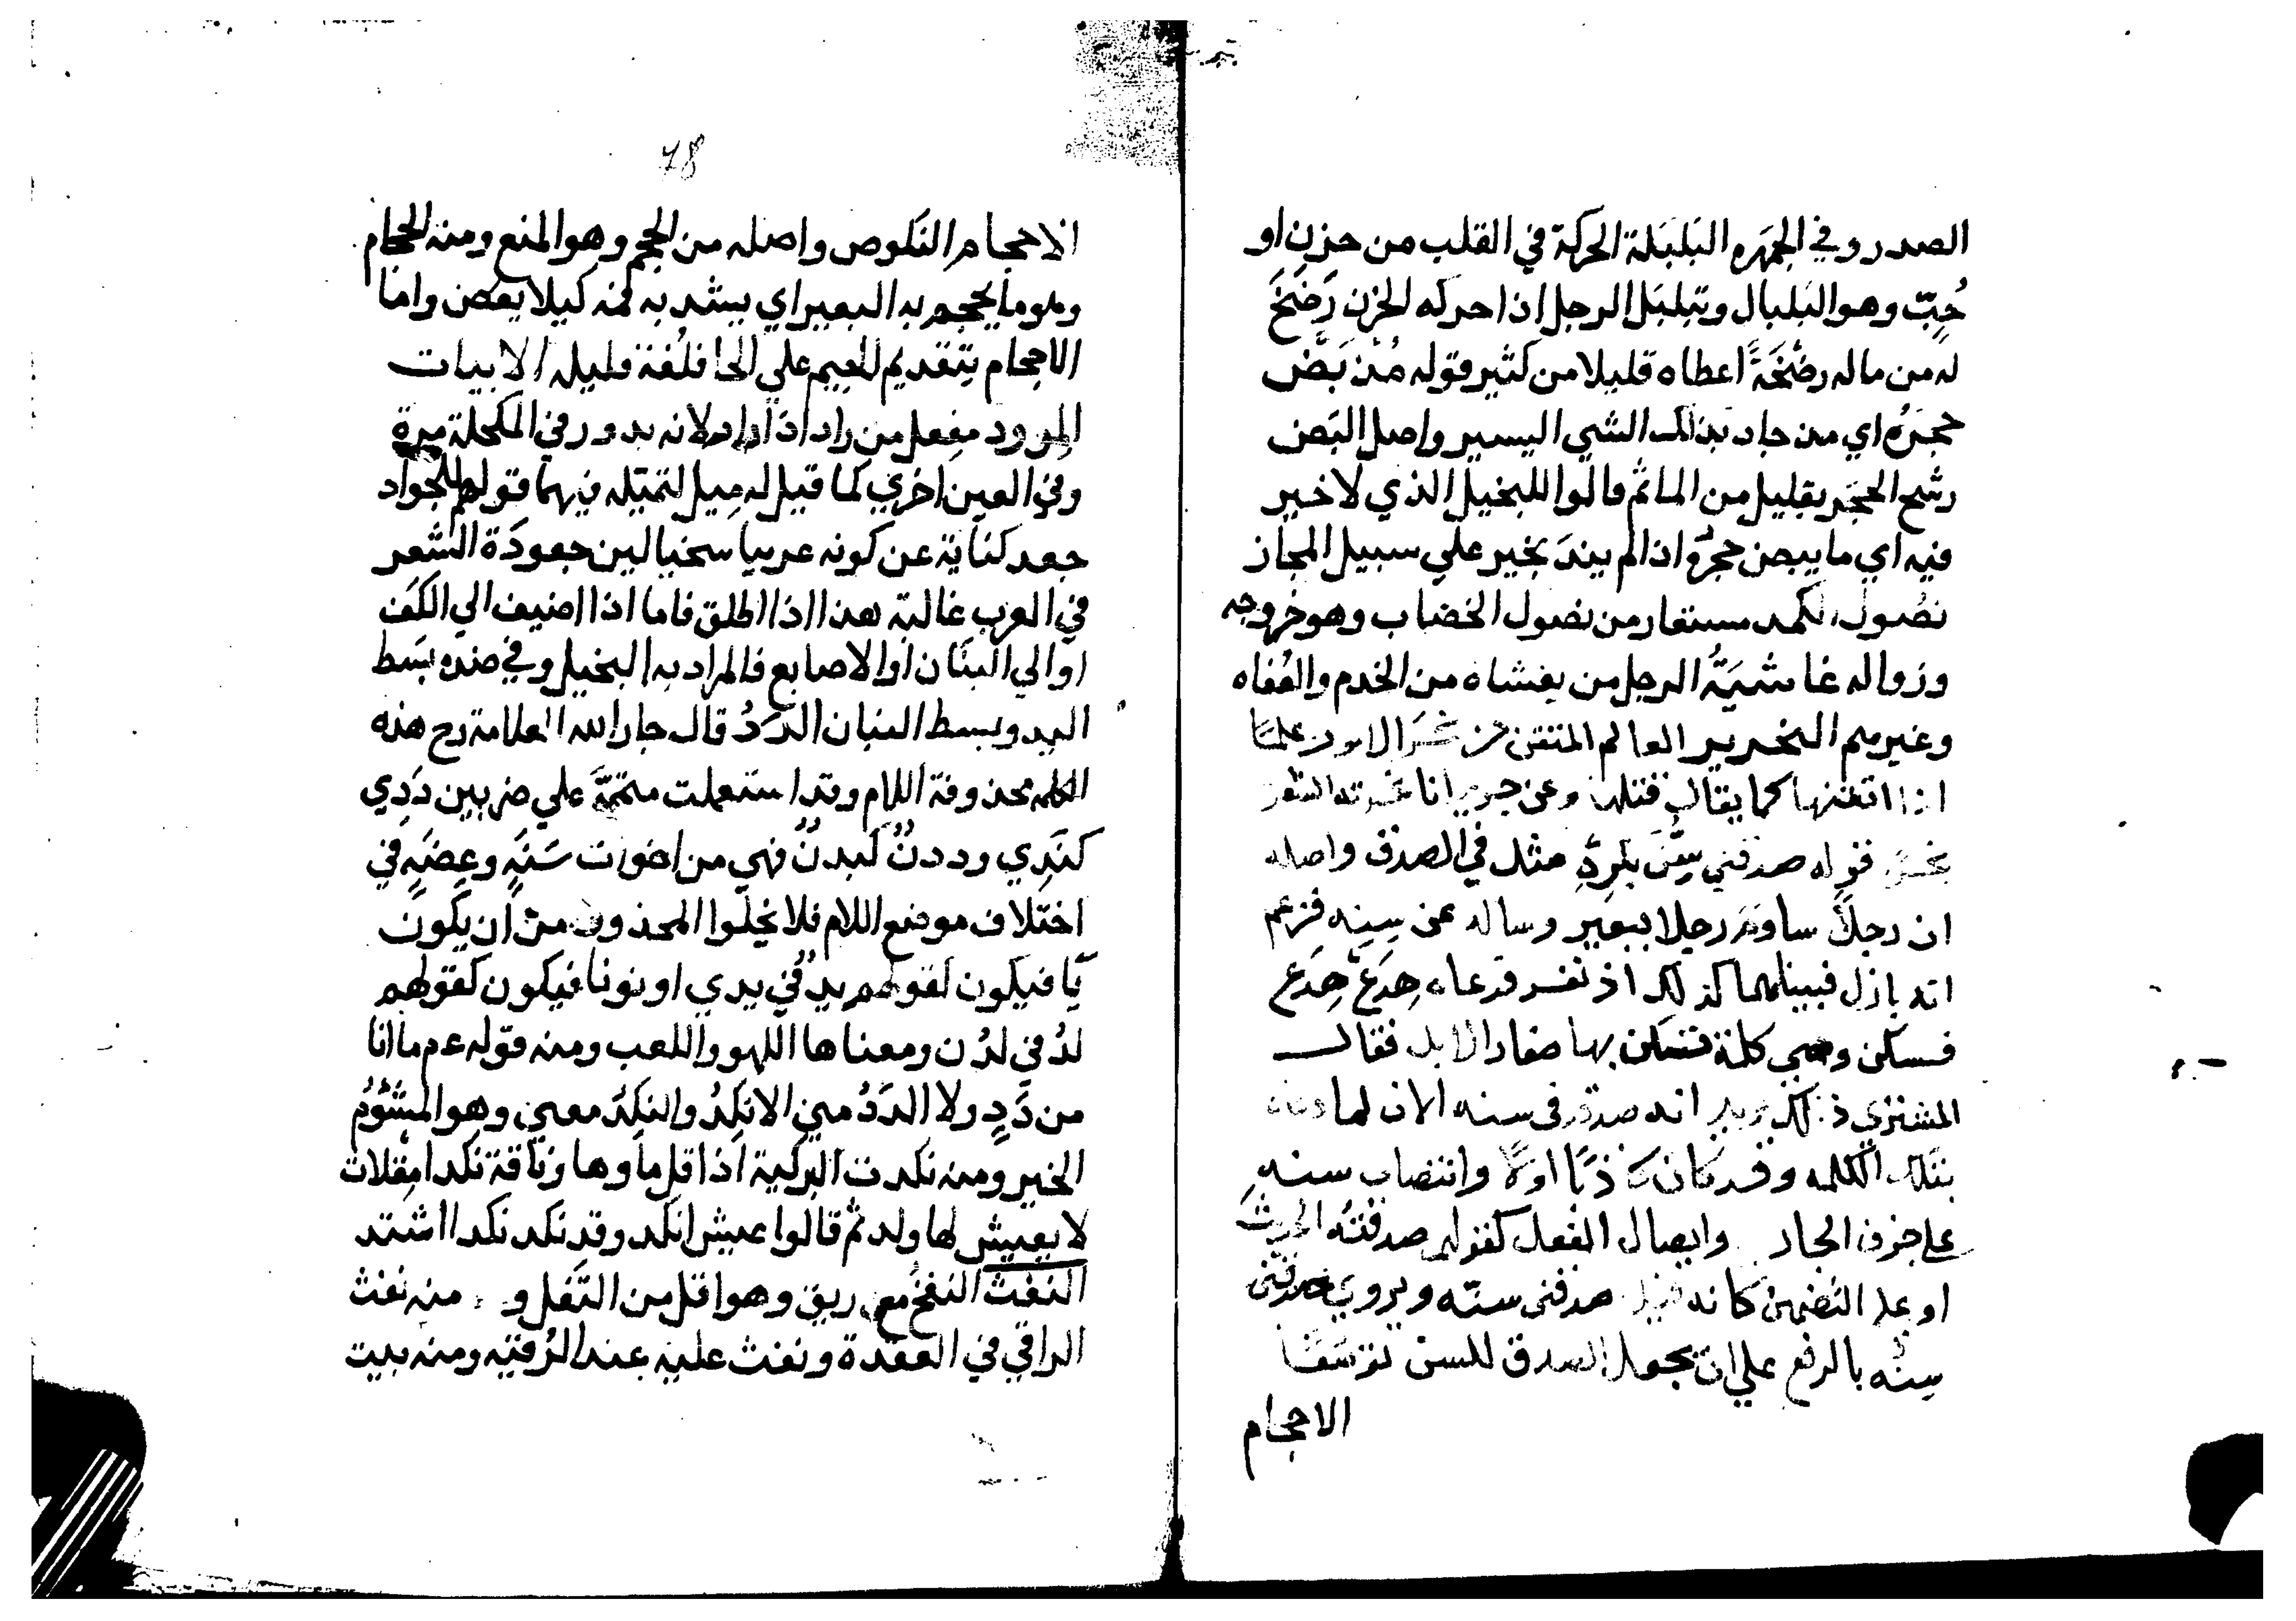 الصدر وفي الجمهره البَلبَلة الحركة في القلب من حزن او
حُبّ وهو البَلبال وتبلبَل الرجل اذا حركه الحزن رَضَخَ
له من ماله رضْخَةً اعطاه قليلا من كثير قوله مُذ بَضَّ
حجَرُه اي مذ جاد بذلك الشي اليسير واصل البَض
رشح الحجَر بقليل من الما ثم قالوا للبخيل الذي لا خير
فيه اي ما يبض حجرُه اذا لم يندَ بخير علي سبيل المجاز
نصُول الكمد مستعار من نصول الخضاب وهو خروجه
وزواله غاشيَةُ الرجل من يغشاه من الخدم والعُفاه
وغيرهم النحرير العالم المتقن من نحَر الامور علمًا
اذا اتقنها كما يقال قتلها وعن جرير انا نحرت الشعر
نحرا قوله صدقني سِنَّ بَكرِهِ مثل في الصدق واصله
ان رجلاً ساوَمَ رجلا ببعير وساله عن سِنِه فزعم
انه بازل فبيناهما كذلك اذ نفر فدعاه هِدَعْ هِدَعْ
فسكن وهي كلمة تسكن بها صغار الابل فقال
المشتري ذلك يريد انه صدق في سنه الان لما دعاه
بتلك الكلمه وقد كان كاذبًا اولاً وانتصاب سنه
علي حذف الجار وايصال الفعل كقولهم صدقتُه الحديثَ
او علي التضمين كانه قيل صدقني سنّه ويروي صدقني
سِنُه بالرفع علي ان يجعل الصدق للسن توسّعًا
الاحجام
78
الاحجام النكوص واصله من الحجم وهو المنع ومنه الحجام
وهو ما يحجم به البعير اي يشد به فمه كيلا يعض واما
الاجحام بتقديم الجيم علي الحا فلُغة قليله الابيات
المِرود مفعل من راد اذا راد لانه يدور في المكحلة مرة
وفي العين اخري كما قيل له مِيل لتميّله فيهما قولهم للجواد
جعد كناية عن كونه عربيا سخيا لان جعودَة الشَعر
في العرب غالبة هذا اذا اطلق فاما اذا اضيف الي الكف
او الي البنَان او الاصابع فالمراد به البخيل وفي ضده بسط
اليد وبسط البنان الدَدُ قال جار الله العلامة رح هذه
الكلمه محذوفة اللام وقد استعملت متمّمَة علي ضربين دَدي
كندِي وددنٌ كبدنٌ فهي من اخوات سَنَةٍ وعِضَةٍ في
اختلاف موضع اللام فلا يخلوا المحذوف من ان يكون
يًا فيكون كقولهم يدٌ في يدي او نونا فيكون كقولهم
لدُ في لدُن ومعناها اللهو واللعب ومنه قوله عم ما انا
من دَدٍ ولا الدَدُ مني الانكدُ والنكِدُ معني وهو المشئوم
الخير ومنه نكدت الركية اذا قل ماوها وناقة نكدا مِقلات
لا يعيش لها ولد ثم قالوا عيش انكد وقد نكد نكدا اشتد
النفث النفخ معه ريق وهو اقل من التَفل و منه نفث
الراقي في العقدة ونفث عليه عند الرُقيه ومنه بيت